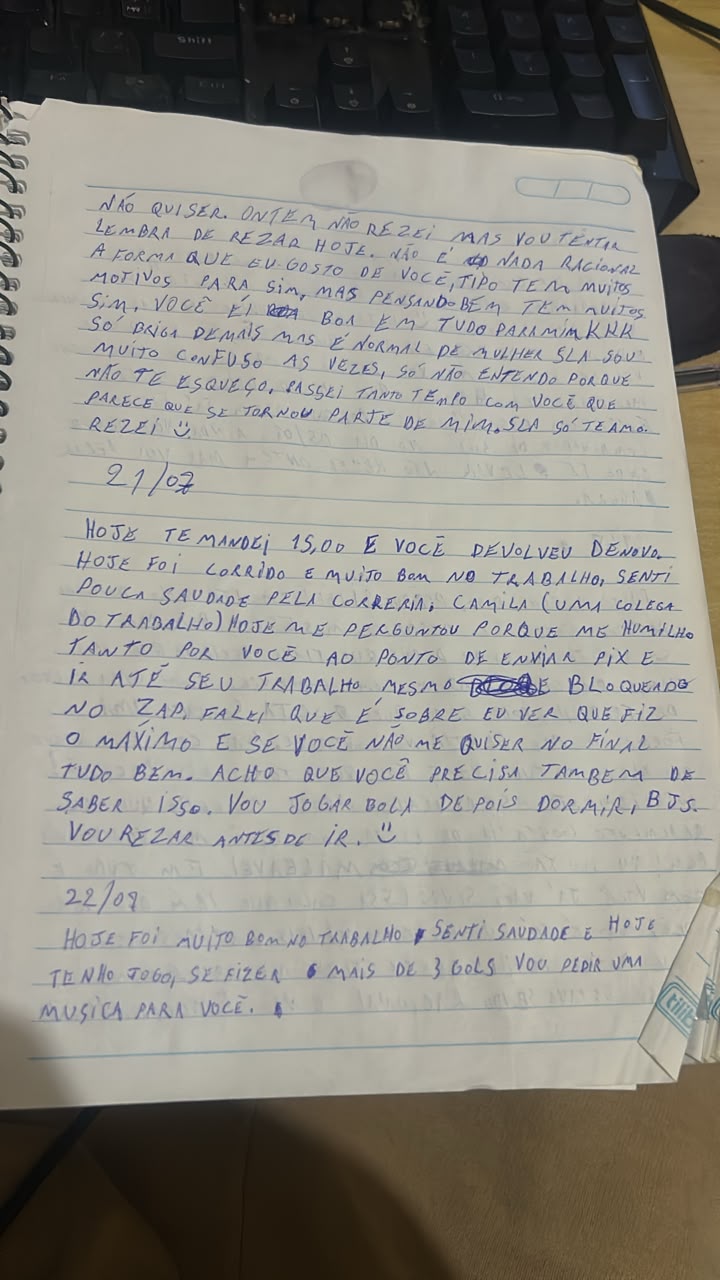 NÃO QUISER. ONTEM NÃO REZEI MAS VOU TENTAR
LEMBRA DE REZAR HOJE. NÃO É NADA RACIONAL
A FORMA QUE EU GOSTO DE VOCÊ, TIPO TEM MUITOS
MOTIVOS PARA SIM, MAS PENSANDO BEM TEM MUITOS
SIM, VOCÊ É BOA EM TUDO PARA MIM KKK
SÓ BRIGA DEMAIS MAS É NORMAL DE MULHER SLA SOU
MUITO CONFUSO AS VEZES, SÓ NÃO ENTENDO PORQUE
NÃO TE ESQUEÇO, PASSEI TANTO TEMPO COM VOCÊ QUE
PARECE QUE SE TORNOU PARTE DE MIM. SLA SÓ TE AMO.
REZEI
21/07
HOJE TE MANDEI 15,00 E VOCÊ DEVOLVEU DENOVO.
HOJE FOI CORRIDO E MUITO BOM NO TRABALHO, SENTI
POUCA SAUDADE PELA CORRERIA, CAMILA (UMA COLEGA
DO TRABALHO) HOJE ME PERGUNTOU PORQUE ME HUMILHO
TANTO POR VOCÊ AO PONTO DE ENVIAR PIX E
IR ATÉ SEU TRABALHO MESMO BLOQUEADO
NO ZAP, FALEI QUE É SOBRE EU VER QUE FIZ
O MÁXIMO E SE VOCÊ NÃO ME QUISER NO FINAL
TUDO BEM. ACHO QUE VOCÊ PRECISA TAMBEM DE
SABER ISSO. VOU JOGAR BOLA DEPOIS DORMIR, BJS.
VOU REZAR ANTES DE IR.
22/07
HOJE FOI MUITO BOM NO TRABALHO, SENTI SAUDADE E HOJE
TENHO JOGO, SE FIZER MAIS DE 3 GOLS VOU PEDIR UMA
MUSICA PARA VOCÊ.
tilib